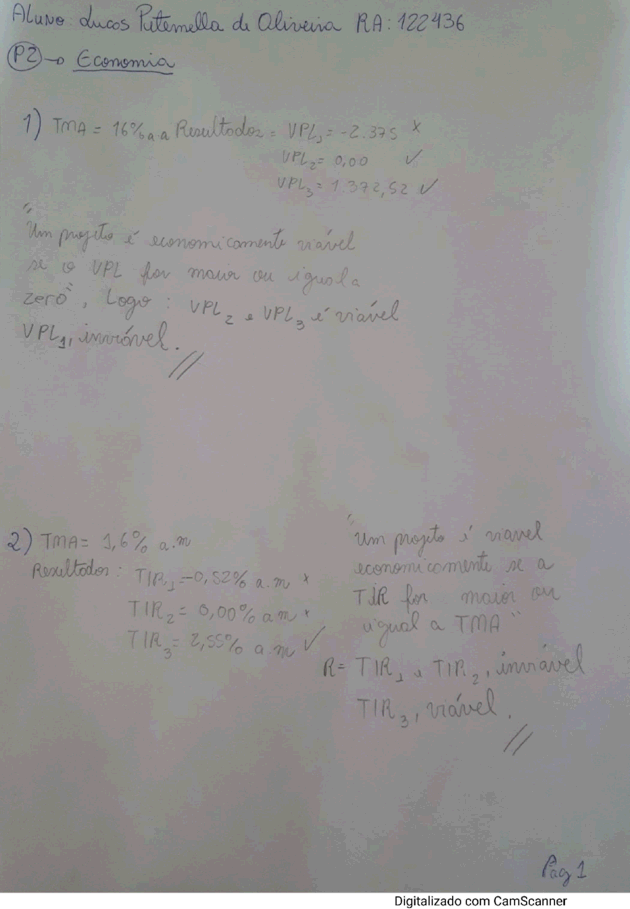 Aluno Lucas Piternella de Oliveira RA: 122436
P2 → Economia
1) TMA = 16% a.a Resultados = VPL1 = -2.375 x
VPL2 = 0,00 ✓
VPL3 = 1.372,52 ✓
"Um projeto é economicamente viável
se o VPL for maior ou igual a
zero", Logo: VPL2 e VPL3 é viável
VPL1, inviável. //
2) TMA = 1,6% a.m
Resultados: TIR1 = -0,52% a.m x
TIR2 = 0,00% a.m x
TIR3 = 2,55% a.m ✓
"Um projeto é viavel
economicamente se a
TIR for maior ou
igual a TMA"
R = TIR1 e TIR2, inviável
TIR3, viável. //
Pág 1
Digitalizado com CamScanner